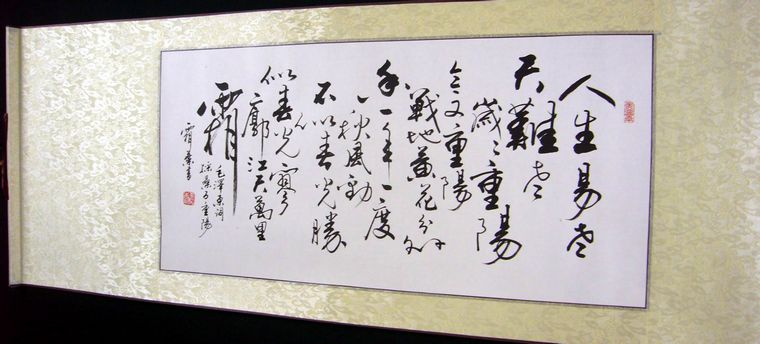 人生易老
天難老
歲々重陽
今又重陽
戰地黄花分外
香一年一度
秋風勁
不似春光勝
似春光寥
廓江天萬里
霜
毛澤東詞
採桑子重陽